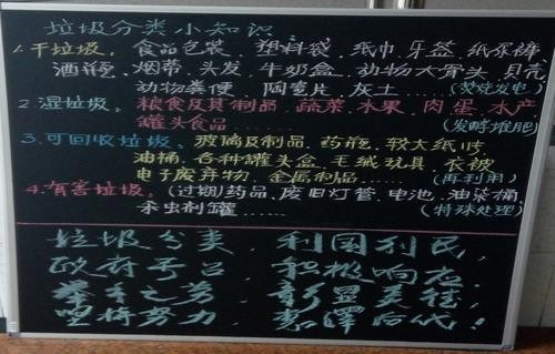 垃圾分类小知识
1.干垃圾。食品包装、塑料袋、纸巾、牙签、纸尿裤
酒瓶、烟蒂、头发、牛奶盒、动物大骨头、贝壳
动物粪便、陶瓷片、灰土……(焚烧发电)
2.湿垃圾。粮食及其制品、蔬菜、水果、肉蛋、水产
罐头食品……(发酵堆肥)
3.可回收垃圾、玻璃及制品、药瓶、较大纸片
油桶、各种罐头盒、毛绒玩具、衣被
电子废弃物、金属制品……(再利用)
4.有害垃圾。(过期)药品、废旧灯管、电池、油漆桶
杀虫剂罐……(特殊处理)
垃圾分类，利国利民，
政府号召，积极响应。
举手之劳，彰显美德，
坚持努力，惠泽后代！